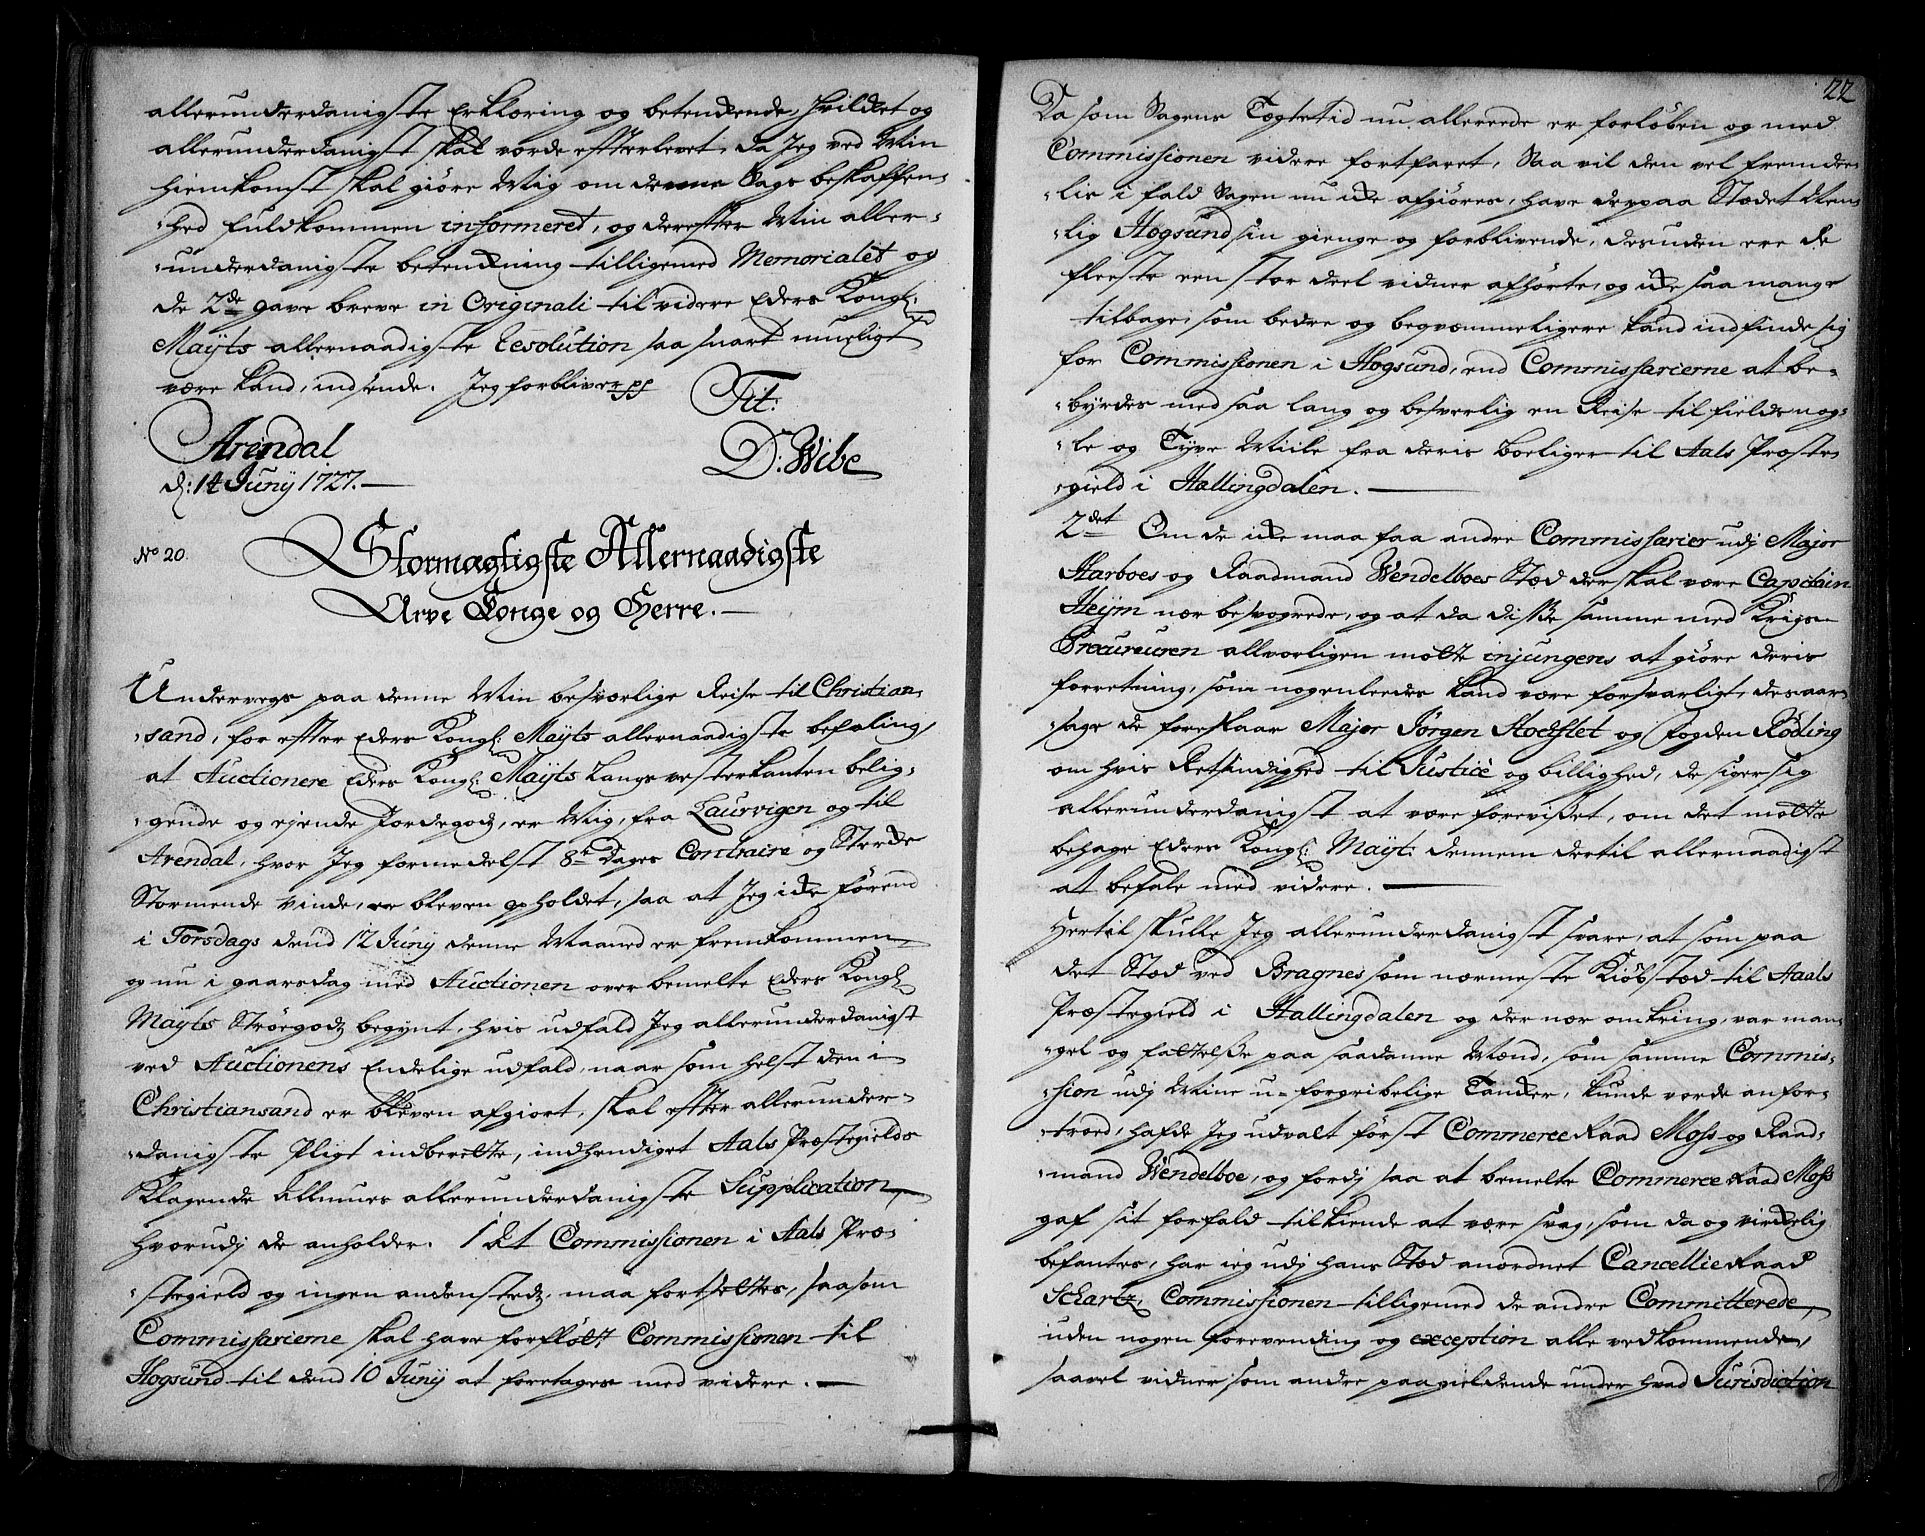 allerunderdanigste Erklæring og betenckende, hvilcket og
allerunderdanigst skal vorde effterlevet, da Jeg ved Min
hiemkomst skal giøre Mig om denne Sags beskaffen-
hed fuldkommen informeret, og dereffter Min aller-
underdanigste betenckning tilligemed Memorialet og
de 2de gave breve in Originali til videre Eders Kongl:
Mayts allernaadigste Resolution saa snart mueligt
være kand, indsende. Jeg forbliver pp
Tit:
Arendal
D: Wibe
d: 14 Juny 1727.
No 20.
Stormægtigste Allernaadigste
Arve Konge og Herre.
Undervegs paa denne Min besværlige Reise til Christian-
sand, for effter Eders Kongl: Mayts allernaadigste befaling
at Auctionere Eders Kongl: Mayts Langs vesterkanten belig-
gende og ejende Jordegodz, er Mig, fra Laurvigen og til
Arendal, hvor Jeg formedelst 8te Dages Contraire og Stercke
Stormende vinde, er bleven opholdet, saa at Jeg icke førend
i Torsdags dend 12 Juny denne Maaned er fremkommen
og nu i gaarsdag med Auctionen over bemelte Eders Kongl:
Mayts Strøegodz begynt, hvis udfald Jeg allerunderdanigst
ved Auctionens Endelige udfald, naar som helst den i
Christiansand er bleven afgiort, skal effter allerunder-
danigste Pligt indberette, indhendiget Aals Præstegields
Klagende Allmues allerunderdanigste Supplication,
hvorudj de anholder. 1 At Commissionen i Aals Præ-
stegield og ingen andenstedz, maa fortsættes, saasom
Commissarierne skal have forfløtt Commissionen til
Hogsund til dend 10 Juny at foretages med videre.
22
Da som Sagens Tægtetid nu allereede er forløben og med
Commissionen videre fortfaret, Saa vil den vel fremdee-
lis i fald Sagen nu icke afgiøres, have derpaa Stædet Nem-
lig Hogsund sin gienge og forblivende, desuden ere de
fleeste een stor deel vidner afhørte, og icke saa mange
tilbage, som bedre og beqvæmmeligere kand indfinde sig
for Commissionen i Hogsund, end Commissarierne at be-
byrdes med saa lang og besverlig en Reise til fields nog-
le og Tyve Miile fra deris boeliger til Aals Præste-
gield i Hallingdalen.
2det Om de icke maa faa andre Commissarier udj Major
Harboes og Raadmand Wendelboes Stæd der skal være Capitain
Heym nær besvogrede, og at da disse samme med Krigs-
Procureuren allvorligen motte injungeres at giøre deris
forretning, som nogenleedes kand være forsvarligt, des aar-
sage de foreskaar Major Jörgen Stochflet og Fogden Röding
om hvis Retsindighed til Justice og billighed, de siger sig
allerunderdanigst at være forvisset, om det motte
behage Eders Kongl: Mayt: dennem dertil allernaadigst
at befale med videre.
Hertil skulle Jeg allerunderdanigst svare, at som paa
det Stæd ved Bragnes som nærmeste Kiøbstæd til Aals
Præstegield i Hallingdalen og der nær omkring, var man-
gel og fattelsse paa saadanne Mænd, som samme Commis-
sion udj Mine u-forgribelige Tancker, kunde vorde anfor-
troed, hafde Jeg udvalt først Commerce Raad Moss og Raad-
mand Wendelboe, og fordj saa at bemelte Commerce Raad Moss
gaf sit forfald tilkiende at være svag, som da og virckelig
befantes, har jeg udj hans Stæd anordnet Cancellie Raad
Schartz, Commissionen tilligemed de andre Committerede,
uden nogen forevending og exception alle vedkommende,
saavel vidner som andre paagieldende under hvad Jurisdiction